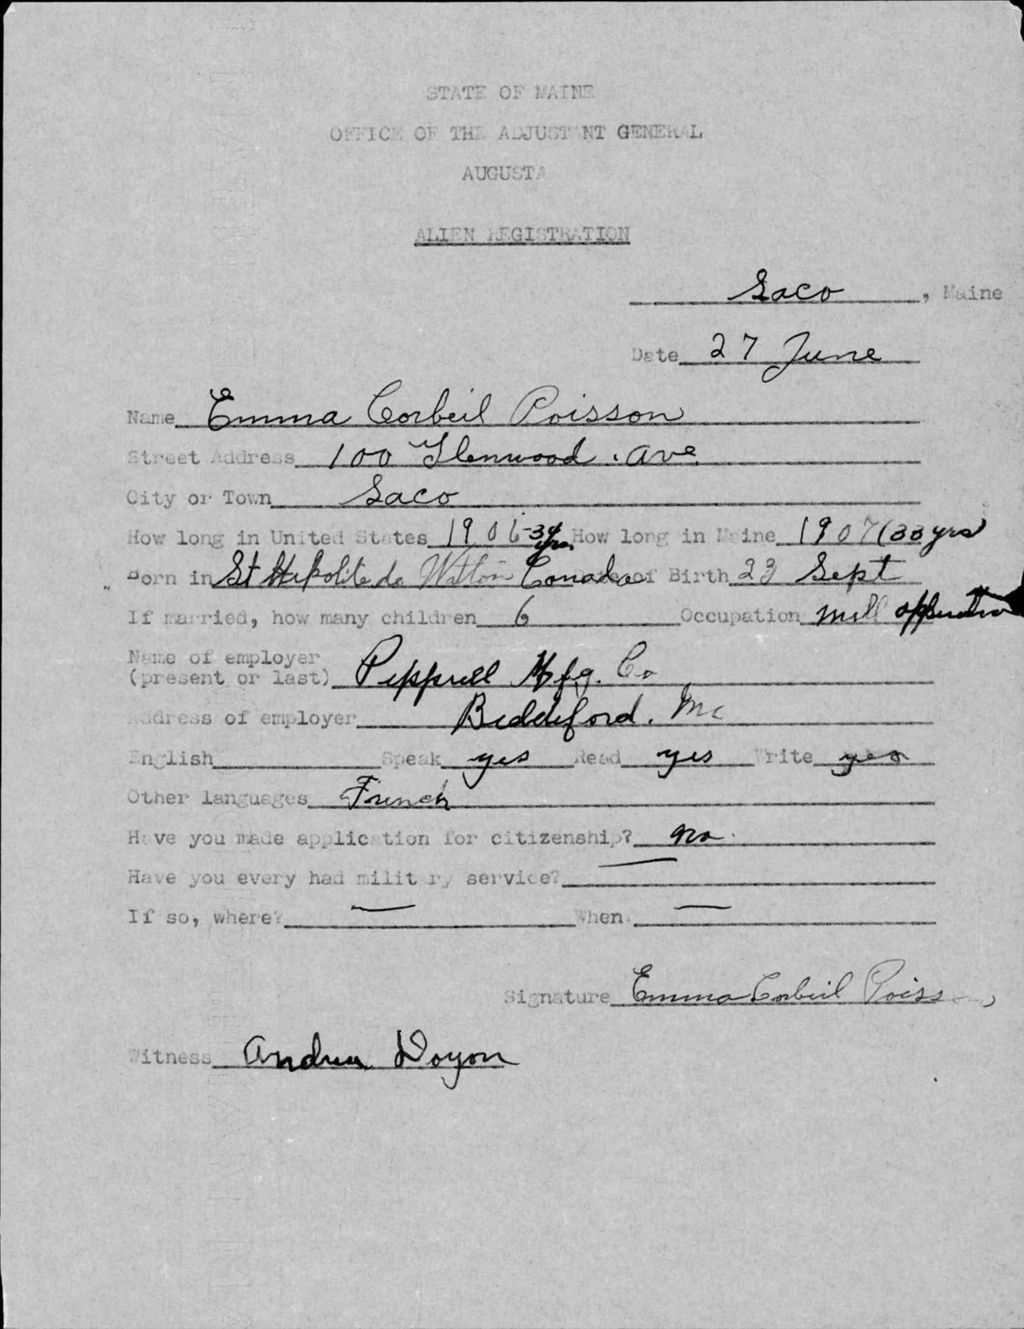 STATE OF MAINE
OFFICE OF THE ADJUSTANT GENERAL
AUGUSTA
ALIEN REGISTRATION
Saco, Maine
Date 27 June
Name Emma Corbeil Poisson
Street Address 100 Glenwood. Ave
City or Town Saco
How long in United States 1906-34 yrs. How long in Maine 1907 (33 yrs)
Born in St Hipolite de Canada of Birth 23 Sept
If married, how many children 6 Occupation mill
Name of employer
(present or last) Pepprell Mfg. Co
Address of employer Biddeford. Me
English Speak yes Read yes Write yes
Other languages French
Have you made application for citizenship? no.
Have you every had military service? —
If so, where? — When. —
Signature Emma Corbeil Poisson
Witness Andrea Doyon